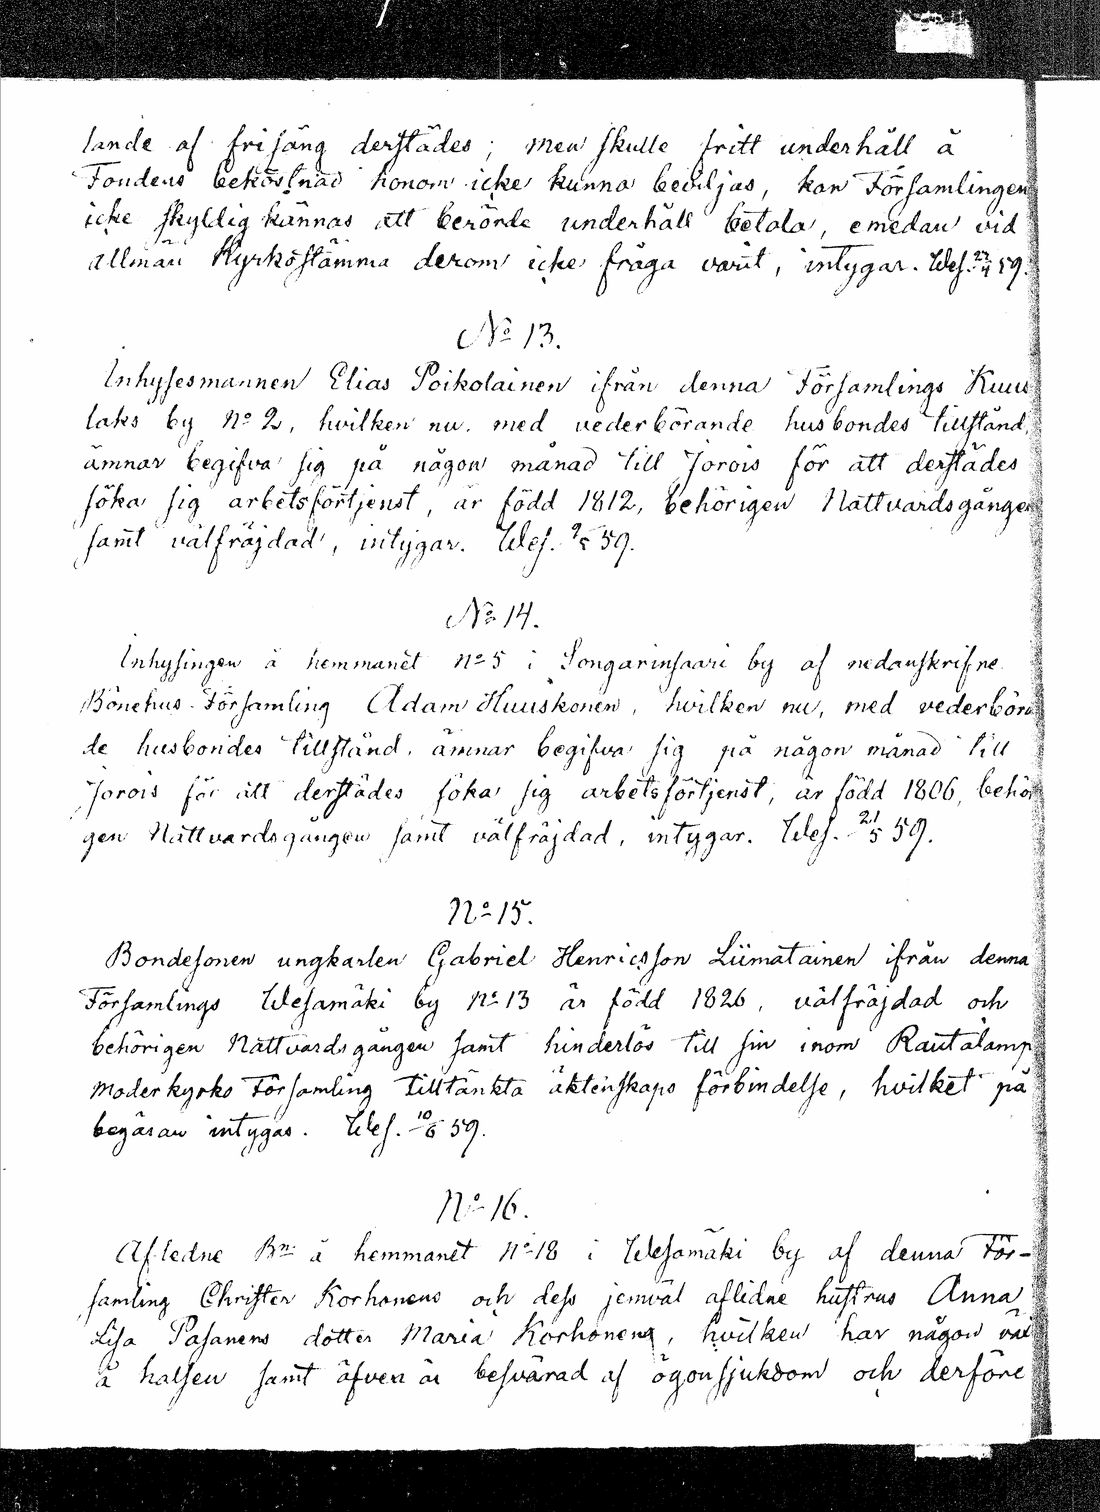 lande af frisäng derstädes; men skulle fritt underhåll å
Fondens bekostnad honom icke kunna beviljas, kan Församlingen
icke skyldig kännas att berörde underhåll betala, emedan vid
allmän Kyrkostämma derom icke fråga varit, intygar. Wes. 27/4 59.
No 13.
Inhysesmannen Elias Poikolainen ifrån denna Församlings Kuus
laks by No 2, hvilken nu, med vederbörande husbondes tillstånd,
ämnar begifva sig på någon månad till Jorois för att derstädes
söka sig arbetsförtjenst, är född 1812, behörigen Nattvardsgången
samt välfräjdad, intygar. Wes. 9/5 59.
No 14.
Inhysingen å hemmanet No 5 i Songarinsaari by af nedanskrifne
Bönehus-Församling Adam Huuskonen, hvilken nu, med vederböran
de husbondes tillstånd, ämnar begifva sig på någon månad till
Jorois för att derstädes söka sig arbetsförtjenst, är född 1806, behöri
gen Nattvardsgången samt välfräjdad, intygar. Wes. 21/5 59.
No 15.
Bondesonen ungkarlen Gabriel Henricsson Liimatainen ifrån denna
Församlings Wesamäki by No 13 är född 1826, välfräjdad och
behörigen Nattvardsgången samt hinderlös till sin inom Rautalamp
moderkyrko Församling tilltänkta äktenskaps förbindelse, hvilket på
begäran intygas. Wes. 10/6 59.
No 16.
Afledne Bn å hemmanet No 18 i Wesamäki by af denna För-
samling Christer Korhonens och dess jemväl aflidne hustrus Anna
Lisa Pasanens dotter Maria Korhonen, hvilken har någon väx
å halsen samt äfven är besvärad af ögonsjukdom och derföre